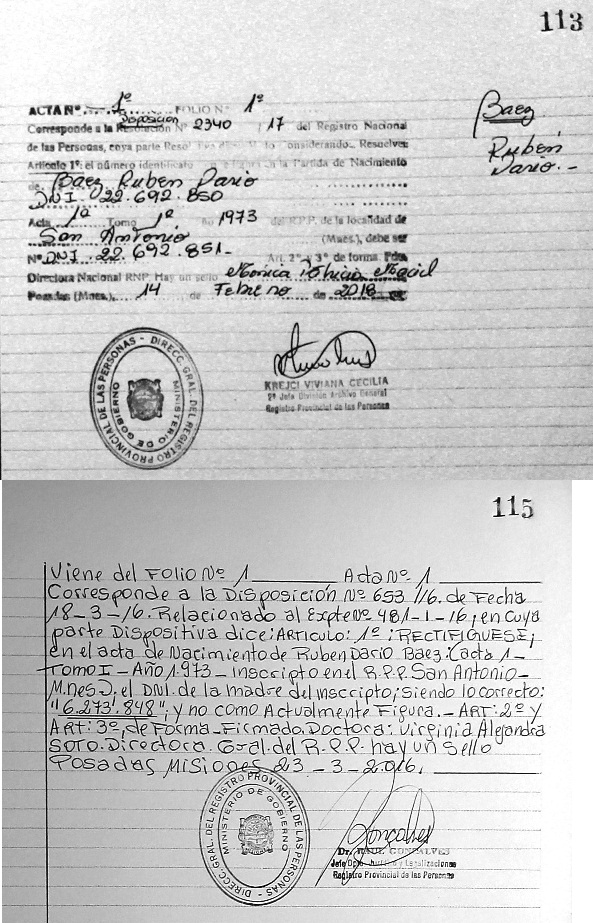 113
ACTA Nº 1º FOLIO Nº 1º
Disposición
Corresponde a la Resolución Nº 2340 / 17 del Registro Nacional
de las Personas, cuya parte Resol
Considerando. Resuelve:
Artículo 1º: el número identificato en la Partida de Nacimiento
de Baez Ruben Dario
DNI. 022.692.850
Acta 1º Tomo 1º 1973 del R.P.P. de la localidad de
San Antonio (Mnes.), debe ser
Nº DNI. 22.692.851- Art. 2º y 3º de forma. Fdo.
Directora Nacional RNP. Hay un sello Monica Patricia
Posadas (Mnes.), 14 de Febrero de 2018
Baez
Ruben
Dario.-
DIRECC. GRAL. DEL REGISTRO PROVINCIAL DE LAS PERSONAS -
MINISTERIO DE GOBIERNO
KREJCI VIVIANA CECILIA
2º Jefa División Archivo General
Registro Provincial de las Personas
115
Viene del FOLIO Nº 1 Acta Nº 1
Corresponde a la Disposición Nº 653/16. de Fecha
18-3-16. Relacionado al Expte Nº 481-1-16; en cuya
parte Dispositiva dice: ARTICULO: 1º: RECTIFIQUESE;
en el acta de Nacimiento de Ruben Dario Baez: (acta 1-
TOMO I - Año 1.973 - Inscripto en el R.P.P. San Antonio-
Mnes), el DNI. de la madre del inscripto; Siendo lo correcto:
"6.273.848"; y no como Actualmente Figura.- ART: 2º y
ART: 3º, de Forma-Firmado. Doctora: Virginia Alejandra
SOTO. Directora. Gral. del R.P.P. hay un Sello
Posadas Misiones 23-3-2.016.
DIRECC. GRAL. DEL REGISTRO PROVINCIAL DE LAS PERSONAS -
MINISTERIO DE GOBIERNO
Gonçalves
Dr. RAUL GONCALVES
Jefe Dpto. Jurídico y Legalizaciones
Registro Provincial de las Personas